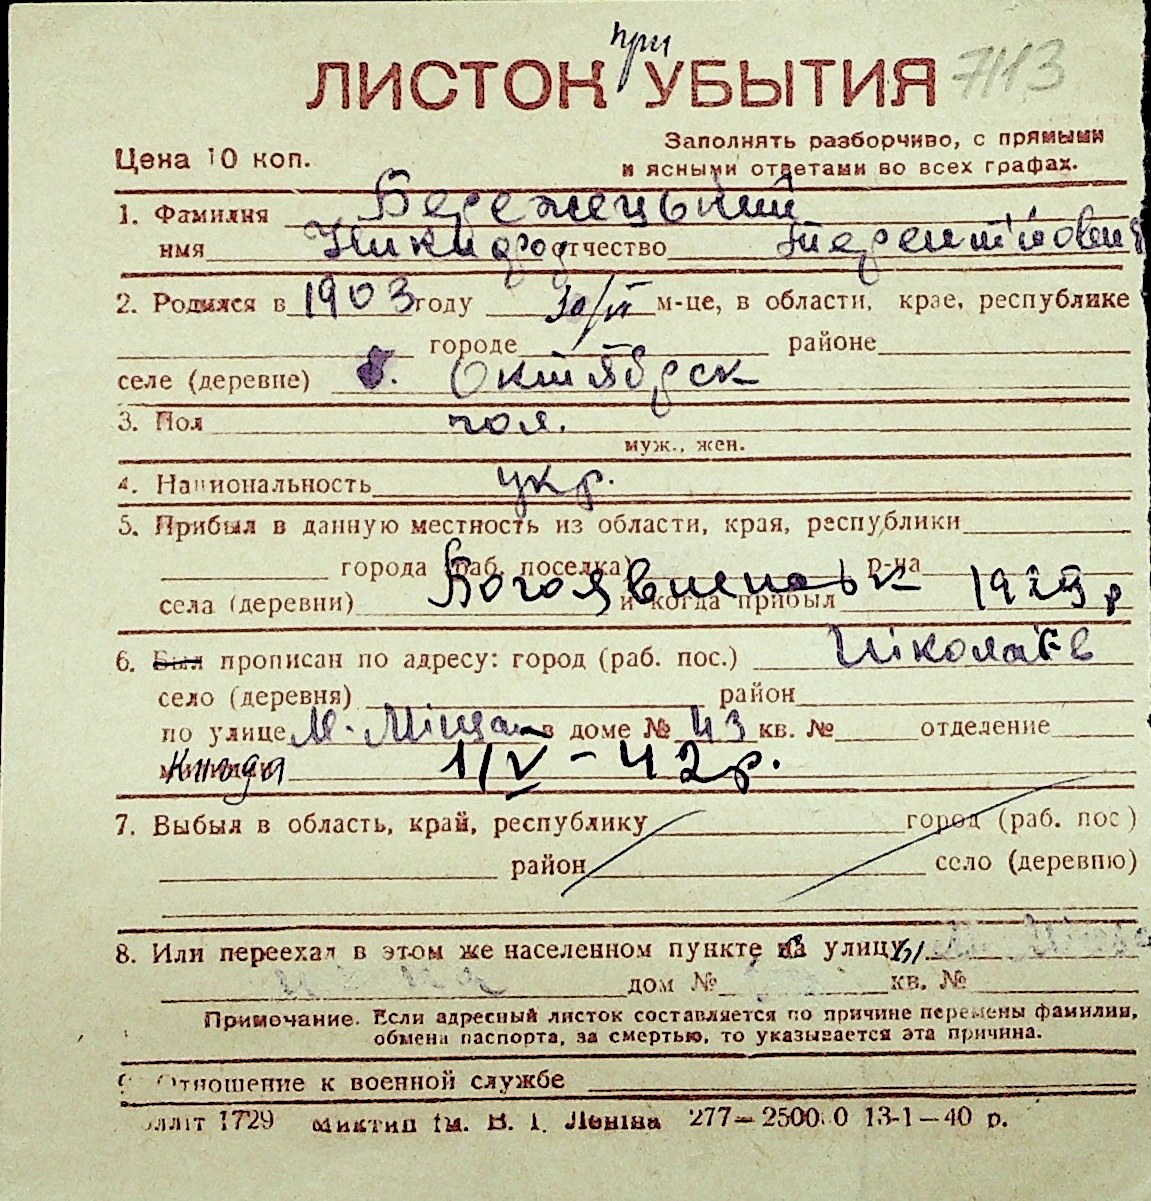 при
ЛИСТОК УБЫТИЯ 7113
Цена 10 коп.
Заполнять разборчиво, с прямыми
и ясными ответами во всех графах.
1. Фамилия Бережецький
имя Никифор отчество Терентійович
2. Родился в 1903 году 10/II м-це, в области, крае, республике
городе районе
селе (деревне) Октябрск
3. Пол чол.
муж., жен.
4. Национальность укр.
5. Прибыл в данную местность из области, края, республики
города (раб. поселка) р-на
села (деревни) Богоявленськ и когда прибыл 1925 р
6. Был прописан по адресу: город (раб. пос.) Ніколаїв
село (деревня) район
по улице М. Міщан в доме № 43 кв. № отделение
1/IV - 42р.
7. Выбыл в область, край, республику город (раб. пос)
район село (деревню)
8. Или переехал в этом же населенном пункте улицы
дом № кв. №
Примечание. Если адресный листок составляется по причине перемены фамилии,
обмена паспорта, за смертью, то указывается эта причина.
Отношение к военной службе
1729 Миктип ім. В. І. Леніна 277—2500 0 13-1—40 р.